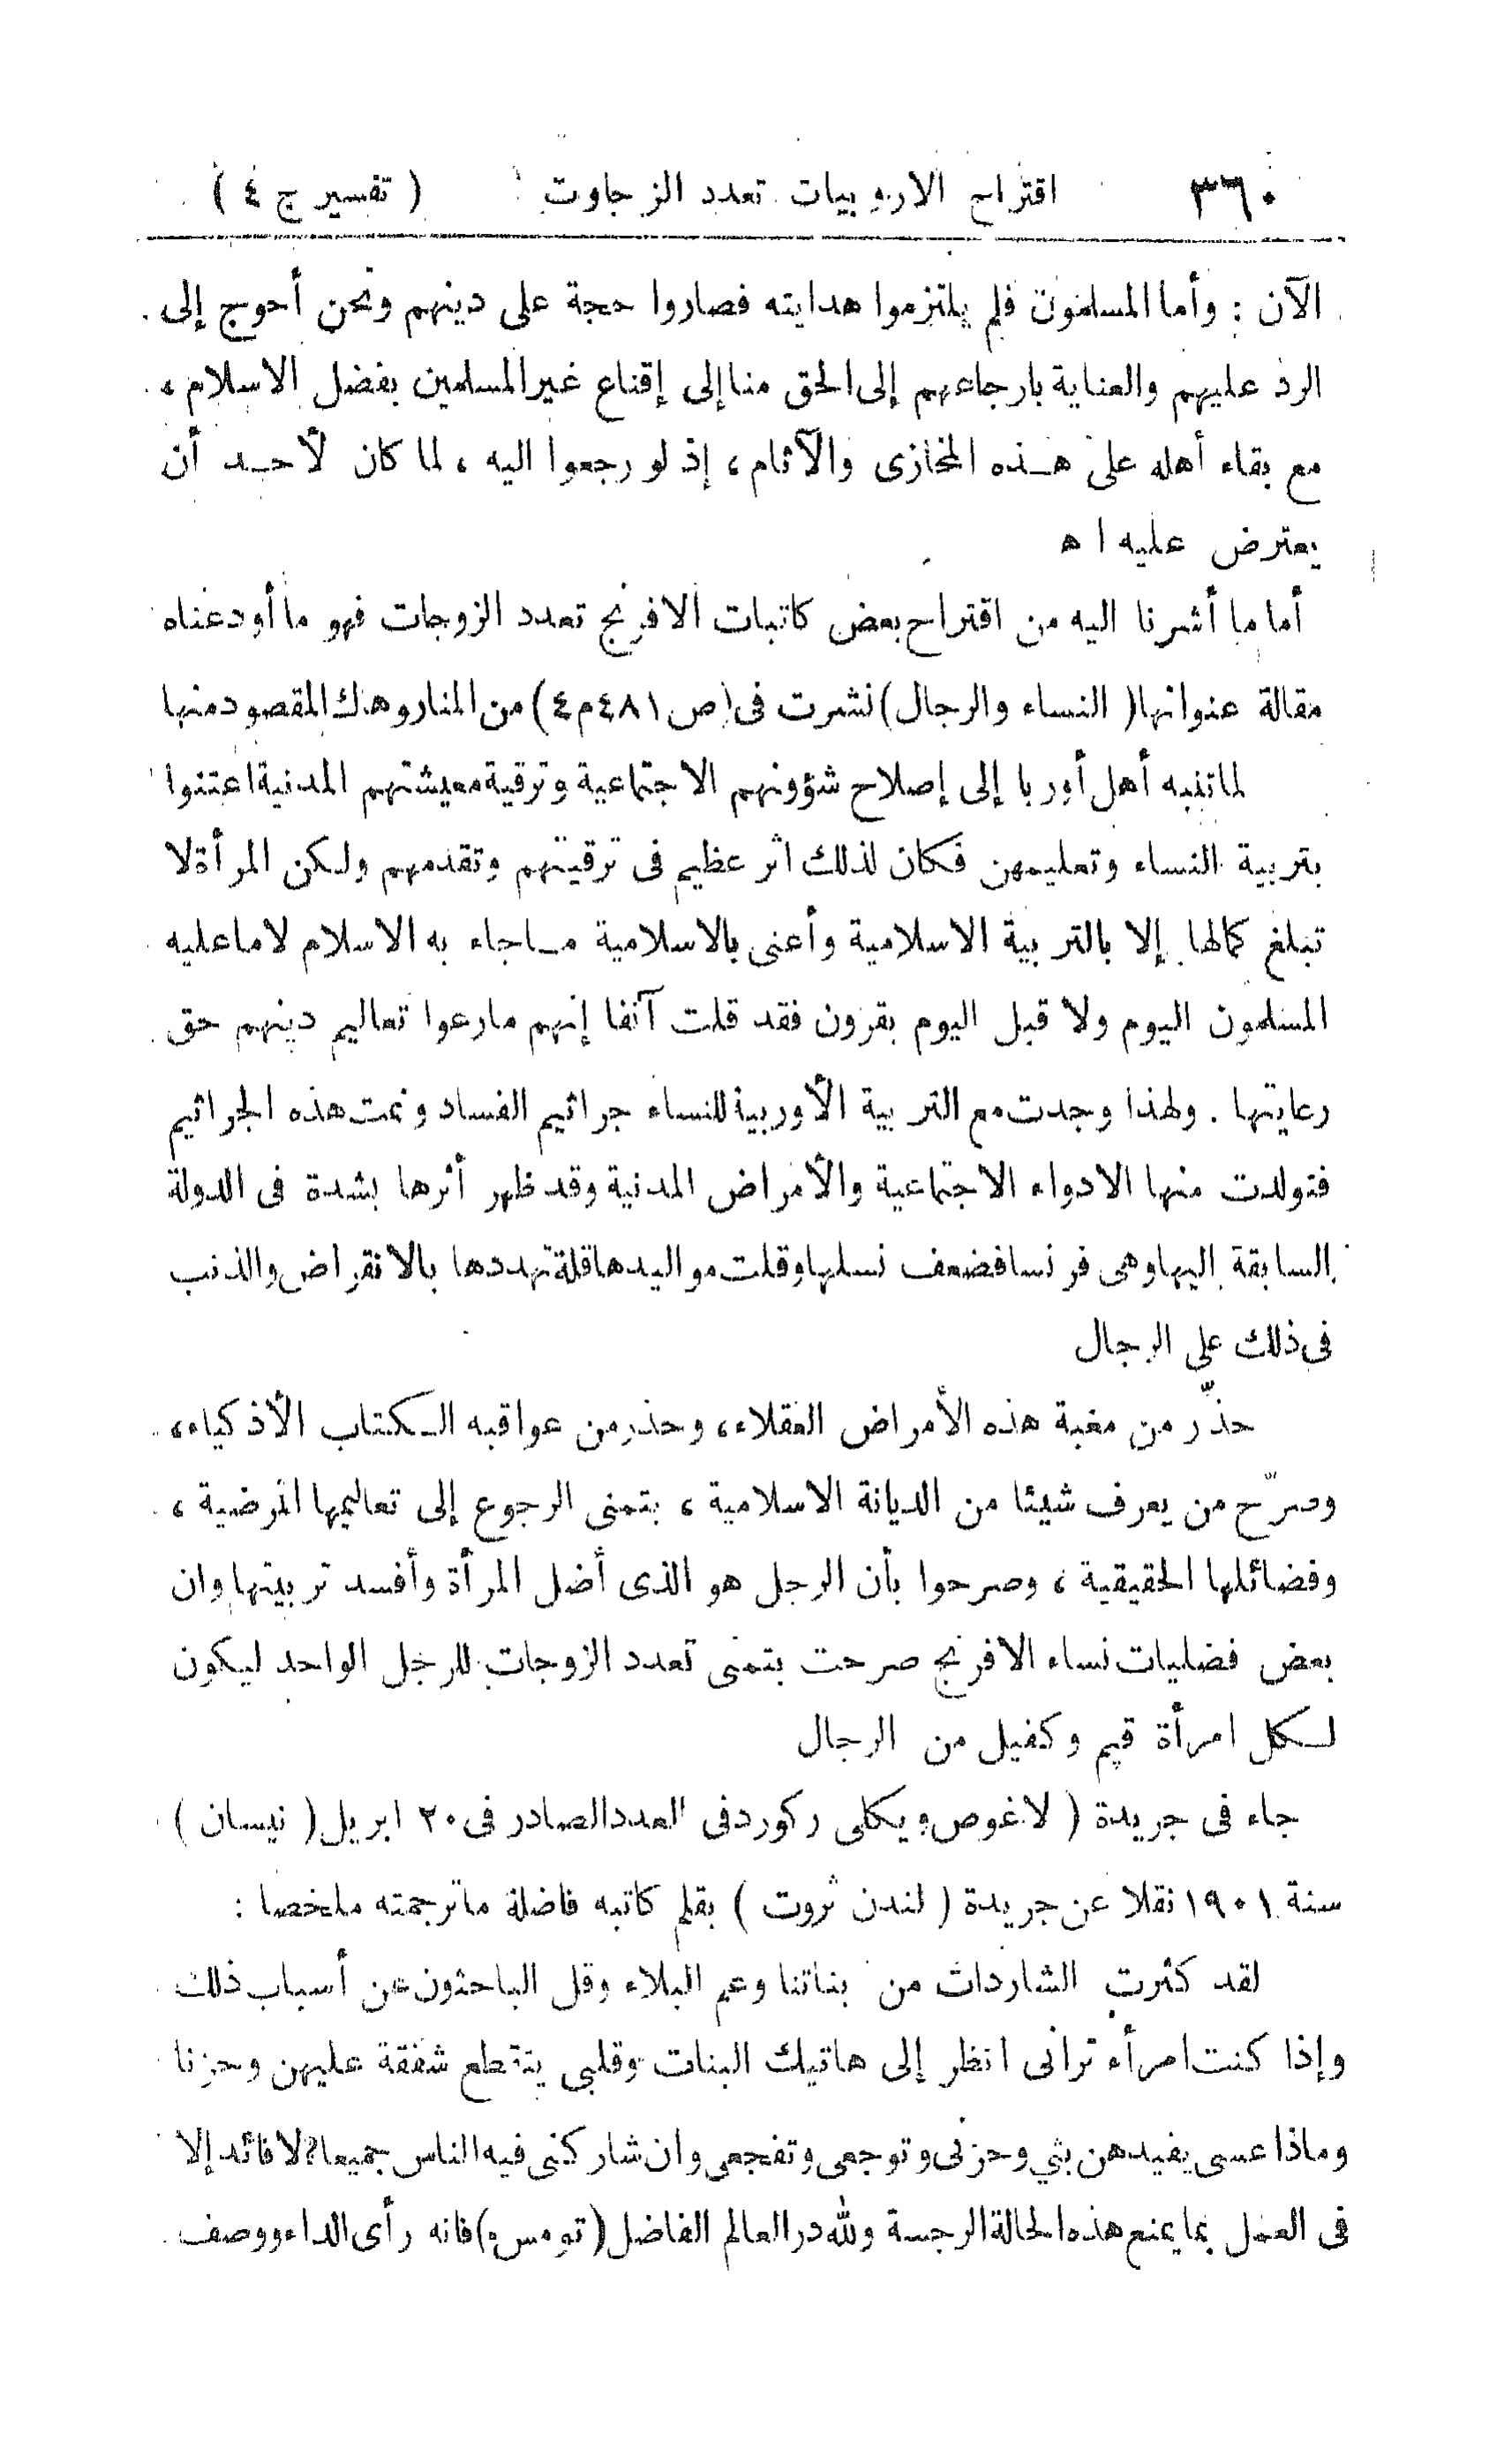 ٣٦٠ اقتراح الاروبيات تعدد الزجاوت ( تفسير ج ٤ )
الآن : وأما المسلمون فلم يلتزموا هدايته فصاروا حجة على دينهم ونحن أحوج إلى
الرد عليهم والعناية بارجاعهم إلى الحق منا إلى إقناع غير المسلمين بفضل الاسلام ،
مع بقاء أهله على هذه المخازى والآثام ، إذ لو رجعوا اليه ، لما كان لأحد أن
يعترض عليه ا ه
أما ما أشرنا اليه من اقتراح بعض كاتبات الافرنج تعدد الزوجات فهو ما أودعناه
مقالة عنوانها ( النساء والرجال ) نشرت فى ( ص ٤٨١ م ٤ ) من المنار وهاك المقصود منها
لما تنبه أهل أوربا إلى إصلاح شؤونهم الاجتماعية وترقية معيشتهم المدنية اعتنوا
بتربية النساء وتعليمهن فكان لذلك اثر عظيم فى ترقيتهم وتقدمهم ولكن المرأة لا
تبلغ كمالها إلا بالتربية الاسلامية وأعنى بالاسلامية ما جاء به الاسلام لا ما عليه
المسلمون اليوم ولا قبل اليوم بقرون فقد قلت آنفا إنهم ما رعوا تعاليم دينهم حق
رعايتها . ولهذا وجدت مع التربية الأوربية للنساء جراثيم الفساد ونمت هذه الجراثيم
فتولدت منها الادواء الاجتماعية والأمراض المدنية وقد ظهر أثرها بشدة فى الدولة
السابقة اليها وهى فرنسا فضعف نسلها وقلت مواليدها قلة تهددها بالانقراض والذنب
فى ذلك على الرجال
حذّر من مغبة هذه الأمراض العقلاء ، وحذر من عواقبه الكتاب الأذكياء ،
وصرّح من يعرف شيئا من الديانة الاسلامية ، بتمنى الرجوع إلى تعاليمها المرضية ،
وفضائلها الحقيقية ، وصرحوا بأن الرجل هو الذى أضل المرأة وأفسد تربيتها وان
بعض فضليات نساء الافرنج صرحت بتمنى تعدد الزوجات للرجل الواحد ليكون
لكل امرأة قيم وكفيل من الرجال
جاء فى جريدة ( لاغوص ويكلى ركورد فى العدد الصادر فى ٢٠ ابريل ( نيسان )
سنة ١٩٠١ نقلا عن جريدة ( لندن ثروت ) بقلم كاتبه فاضلة ما ترجمته ملخصا :
لقد كثرت الشاردات من بناتنا وعم البلاء وقل الباحثون عن أسباب ذلك
وإذا كنت امرأة ترانى انظر إلى هاتيك البنات وقلبى يتقطع شفقة عليهن وحزنا
وماذا عسى يفيدهن بثي وحزنى وتوجعى وتفجعى وان شاركنى فيه الناس جميعا ؟ لا فائد إلا
فى العمل بما يمنع هذه الحالة الرجسة ولله در العالم الفاضل ( تومس ) فانه رأى الداء ووصف